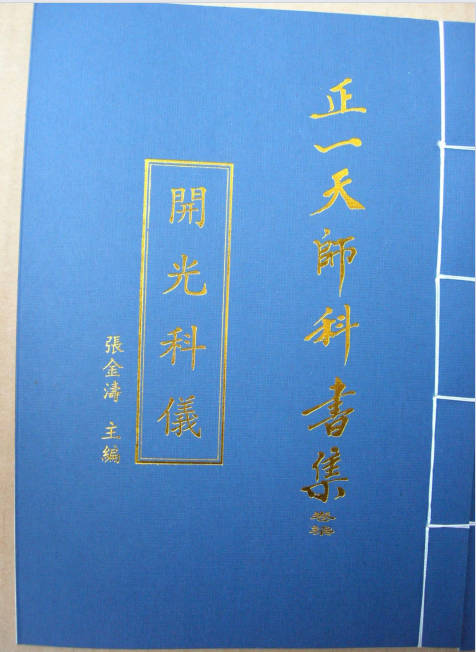 正一天師科書集
開光科儀
張金濤 主編